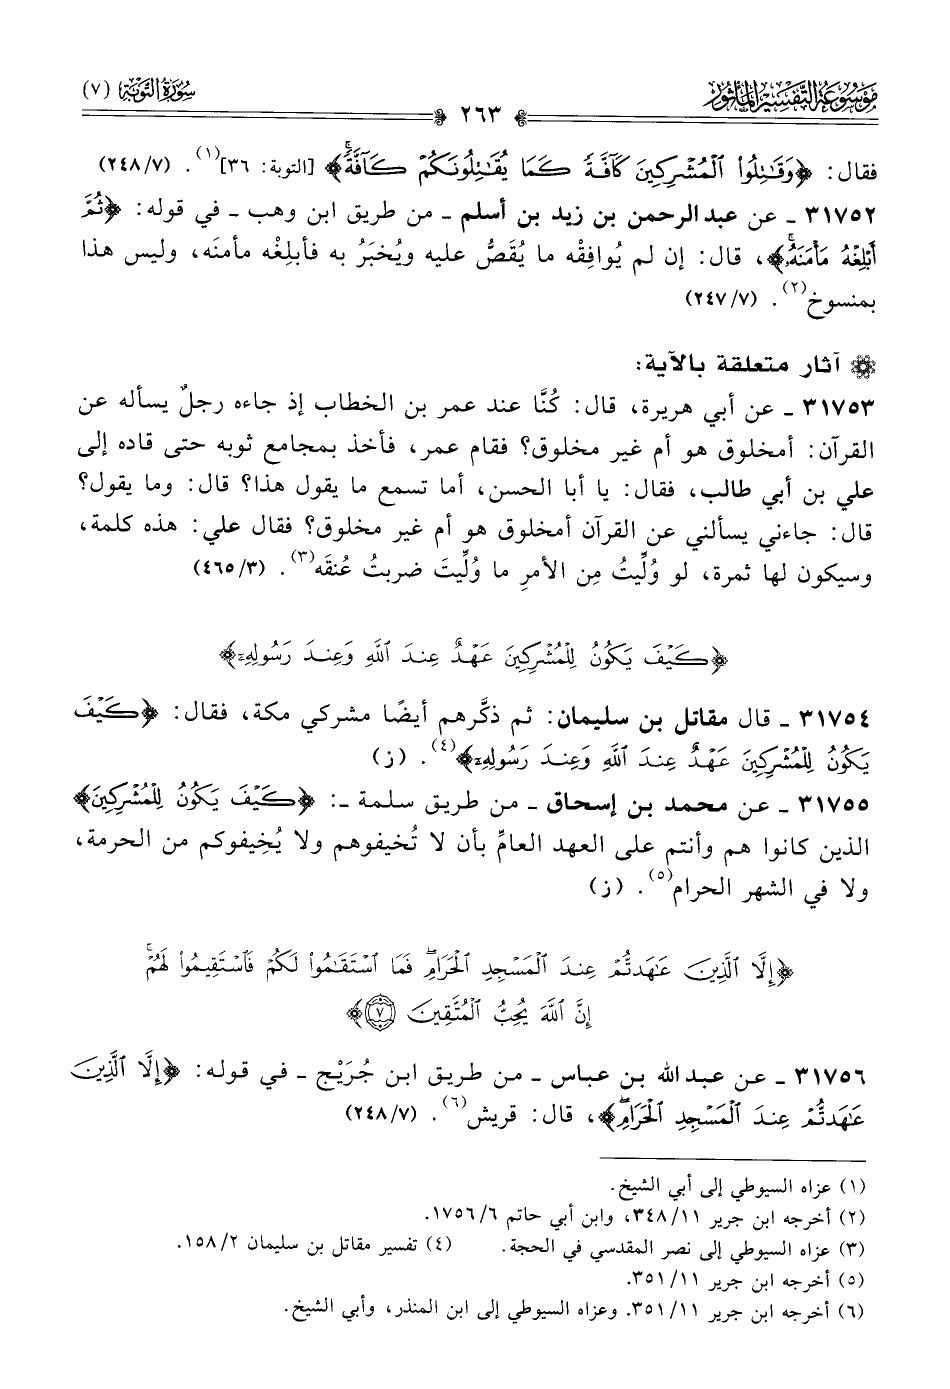 موسوعة التفسير المأثور
سورة التوبة (٧)
٢٦٣
فقال: ﴿وَقَٰتِلُوا۟ ٱلْمُشْرِكِينَ كَآفَّةً كَمَا يُقَٰتِلُونَكُمْ كَآفَّةً﴾ [التوبة: ٣٦](١). (٢٤٨/٧)
٣١٧٥٢ ـ عن عبد الرحمن بن زيد بن أسلم ـ من طريق ابن وهب ـ في قوله: ﴿ثُمَّ
أَبْلِغْهُ مَأْمَنَهُۥ﴾، قال: إن لم يُوافِقْه ما يُقَصُّ عليه ويُخبَرُ به فأبلِغْه مأمنَه، وليس هذا
بمنسوخ(٢). (٢٤٧/٧)
آثار متعلقة بالآية:
٣١٧٥٣ ـ عن أبي هريرة، قال: كُنَّا عند عمر بن الخطاب إذ جاءه رجلٌ يسأله عن
القرآن: أمخلوق هو أم غير مخلوق؟ فقام عمر، فأخذ بمجامع ثوبه حتى قاده إلى
علي بن أبي طالب، فقال: يا أبا الحسن، أما تسمع ما يقول هذا؟ قال: وما يقول؟
قال: جاءني يسألني عن القرآن أمخلوق هو أم غير مخلوق؟ فقال علي: هذه كلمة،
وسيكون لها ثمرة، لو وُلِّيتُ مِن الأمرِ ما وُلِّيتَ ضربتُ عُنقَه(٣). (٤٦٥/٣)
﴿كَيْفَ يَكُونُ لِلْمُشْرِكِينَ عَهْدٌ عِندَ ٱللَّهِ وَعِندَ رَسُولِهِۦ﴾
٣١٧٥٤ ـ قال مقاتل بن سليمان: ثم ذكَّرهم أيضًا مشركي مكة، فقال: ﴿كَيْفَ
يَكُونُ لِلْمُشْرِكِينَ عَهْدٌ عِندَ ٱللَّهِ وَعِندَ رَسُولِهِۦ﴾(٤). (ز)
٣١٧٥٥ ـ عن محمد بن إسحاق ـ من طريق سلمة ـ: ﴿كَيْفَ يَكُونُ لِلْمُشْرِكِينَ﴾
الذين كانوا هم وأنتم على العهد العامِّ بأن لا تُخيفوهم ولا يُخِيفوكم من الحرمة،
ولا في الشهر الحرام(٥). (ز)
﴿إِلَّا ٱلَّذِينَ عَٰهَدتُّمْ عِندَ ٱلْمَسْجِدِ ٱلْحَرَامِ ۖ فَمَا ٱسْتَقَٰمُوا۟ لَكُمْ فَٱسْتَقِيمُوا۟ لَهُمْ ۚ
إِنَّ ٱللَّهَ يُحِبُّ ٱلْمُتَّقِينَ ٧﴾
٣١٧٥٦ ـ عن عبد الله بن عباس ـ من طريق ابن جُرَيْج ـ في قوله: ﴿إِلَّا ٱلَّذِينَ
عَٰهَدتُّمْ عِندَ ٱلْمَسْجِدِ ٱلْحَرَامِ ۖ﴾، قال: قريش(٦). (٢٤٨/٧)
(١) عزاه السيوطي إلى أبي الشيخ.
(٢) أخرجه ابن جرير ٣٤٨/١١، وابن أبي حاتم ١٧٥٦/٦.
(٣) عزاه السيوطي إلى نصر المقدسي في الحجة. (٤) تفسير مقاتل بن سليمان ١٥٨/٢.
(٥) أخرجه ابن جرير ٣٥١/١١.
(٦) أخرجه ابن جرير ٣٥١/١١. وعزاه السيوطي إلى ابن المنذر، وأبي الشيخ.